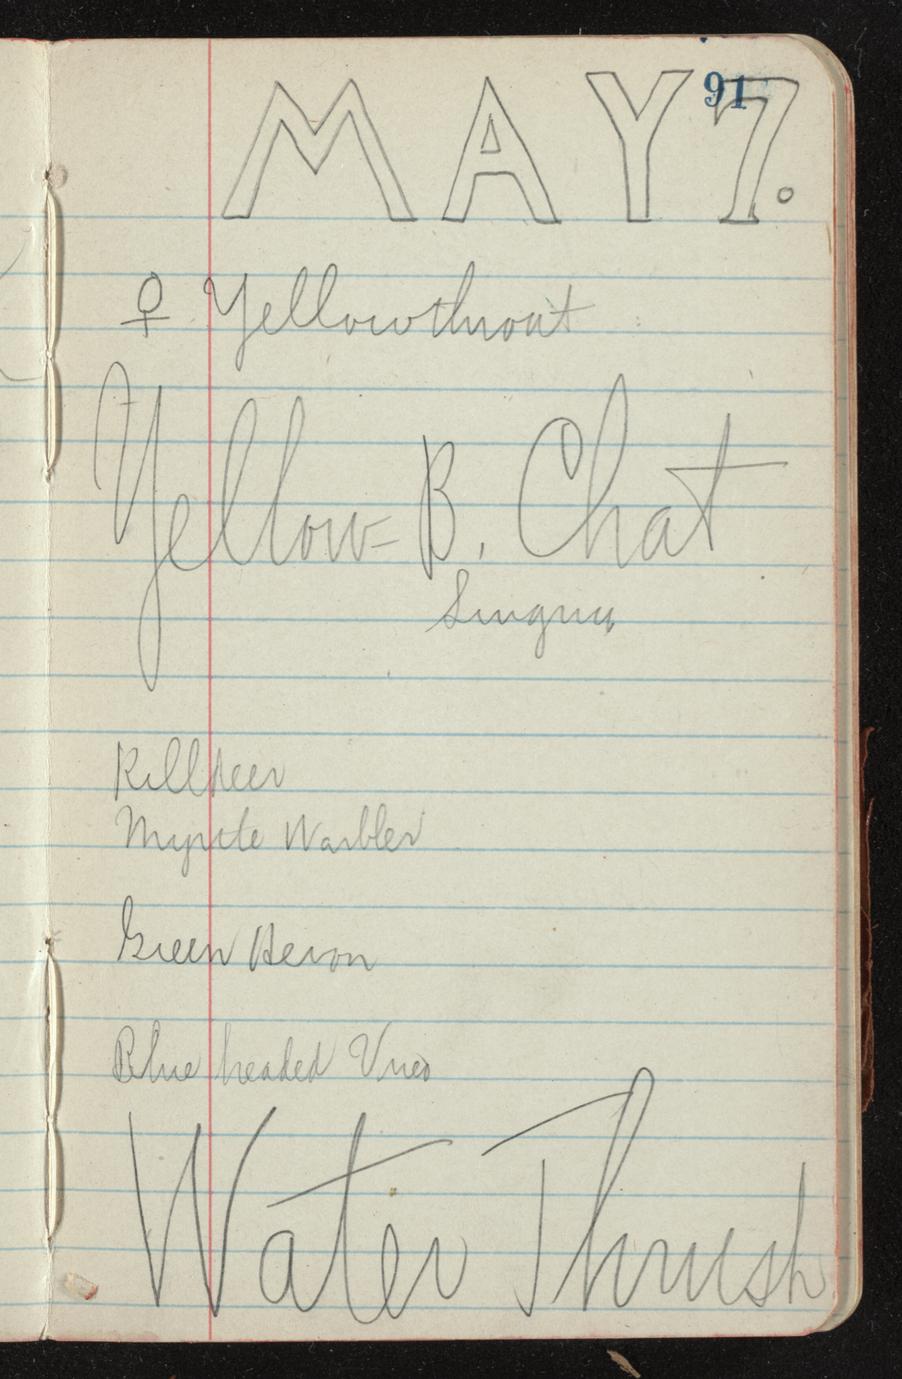 91
MAY 7.
♀ Yellowthroat
Yellow-B. Chat
Singing
Killdeer
Myrtle Warbler
Green Heron
Blue headed Vireo
Water Thrush